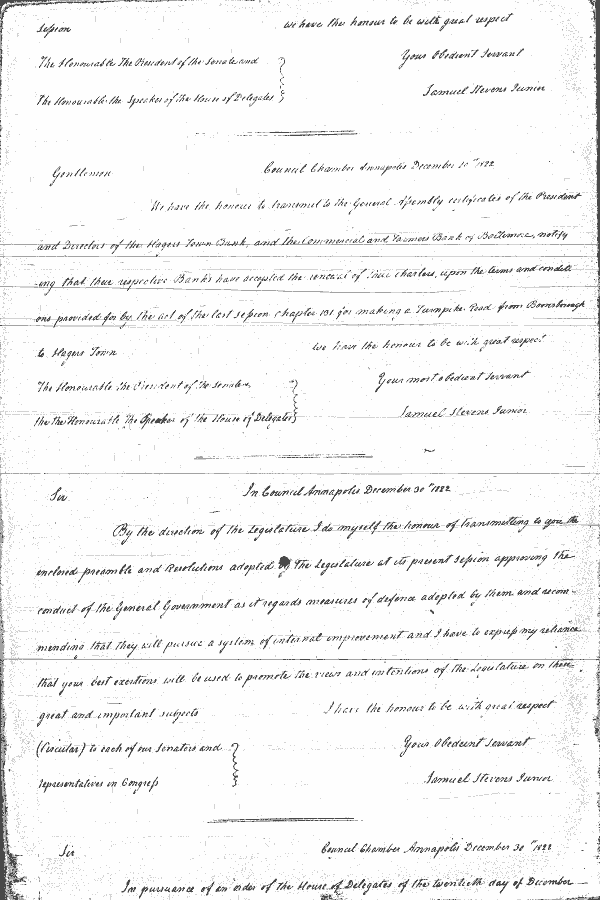 Session we have the honour to be with great respect
The Honourable The President of the Senate and Your Obedient Servant
The Honourable the Speaker of The House of Delegates Samuel Stevens Junior
Gentlemen Council Chamber Annapolis December 30th 1822
We have the honour to transmit to the General Assembly certificates of the President
and Directors of the Hagers Town Bank, and the Commercial and Farmers Bank of Baltimore, notify
ing that their respective Banks have accepted the renewal of their charters, upon the terms and conditi
ons provided for by the act of the last session chapter 131 for making a Turnpike Road from Boonsborough
to Hagers Town we have the honour to be with great respect
The Honourable the President of The Senate, Your most obedient servant
the the Honourable The Speaker of the House of Delegates Samuel Stevens Junior
Sir In Council Annapolis December 30th 1822
By the direction of the Legislature I do myself the honour of transmitting to you the
enclosed preamble and Resolutions adopted by the Legislature at its present session approving the
conduct of the General Government as it regards measures of defence adopted by them and recom-
mending that they will pursue a system of internal improvement and I have to express my reliance
that your best exertions will be used to promote the views and intentions of the Legislature on these
great and important subjects I have the honour to be with great respect
(Circular) to each of our Senators and Your Obedient Servant
representatives in Congress Samuel Stevens Junior
Sir Council Chamber Annapolis December 30th 1822
In pursuance of an order of the House of Delegates of the twentieth day of December